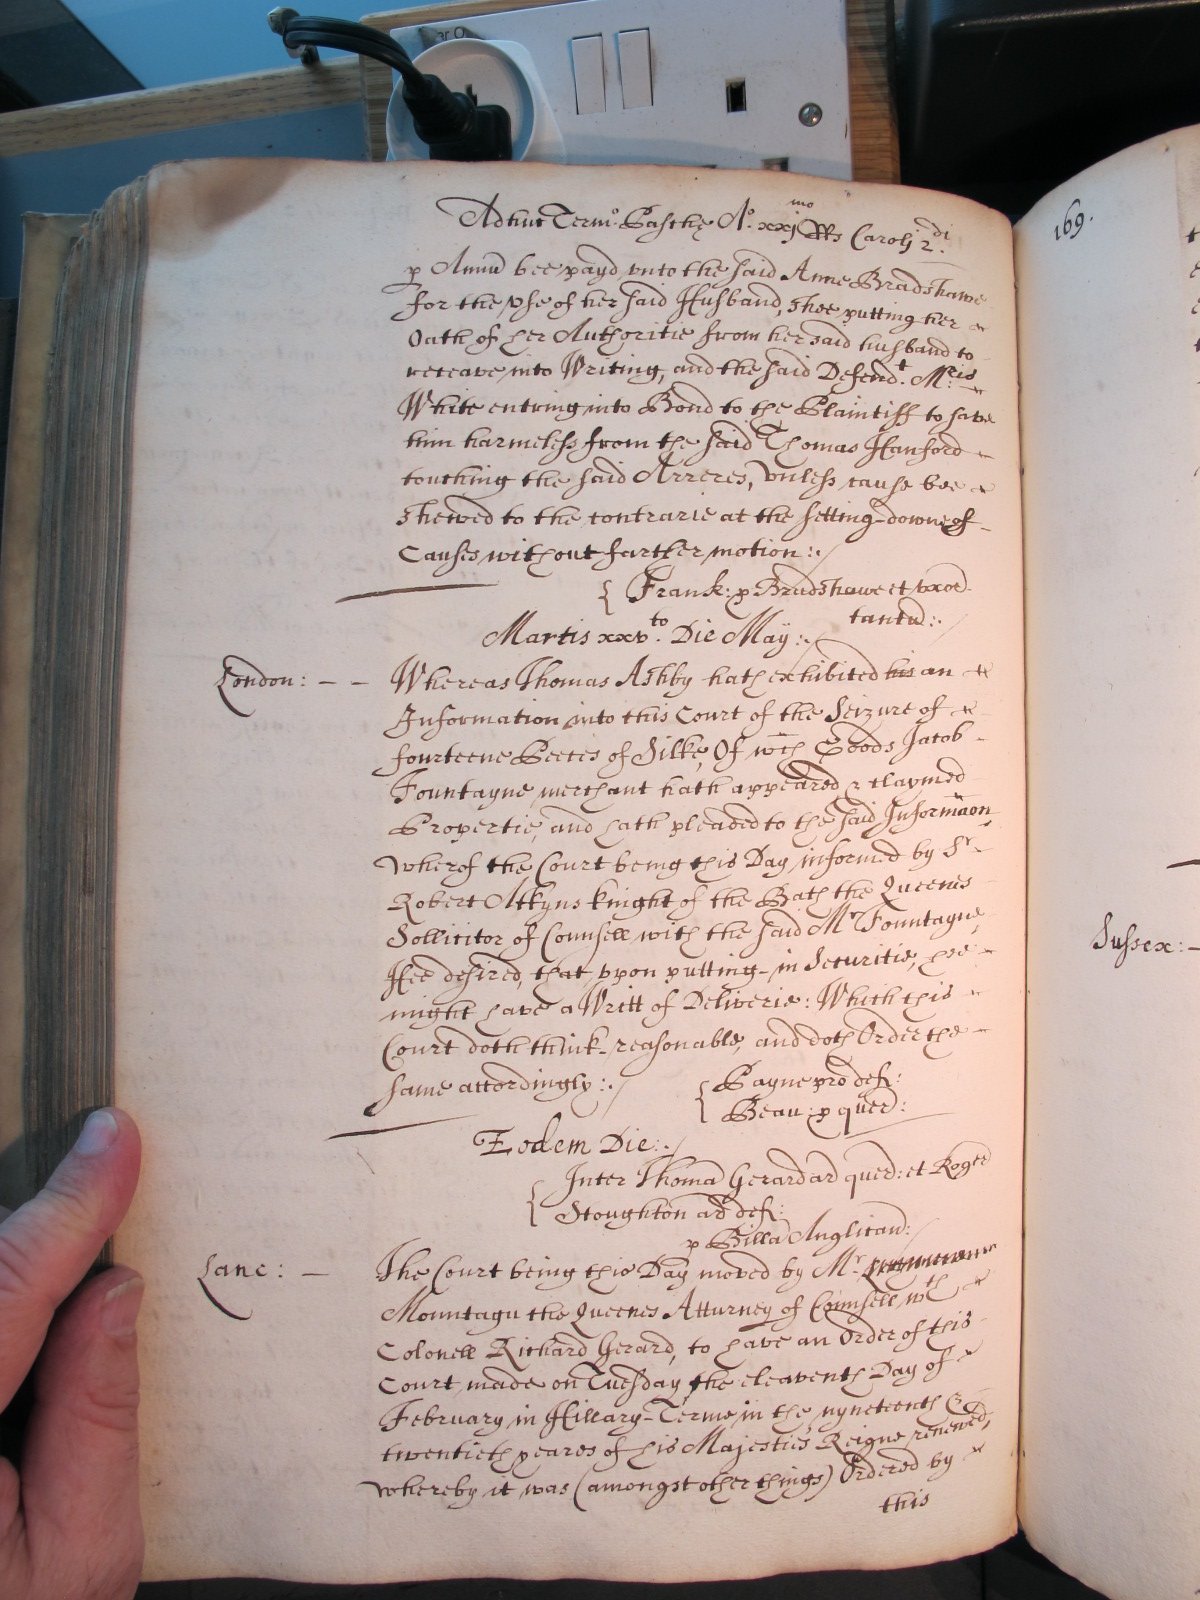 Adhuc Term:o Paschę A:o xxj mo R Rs Caroli 2 di.
p Annu bee payd vnto the said Anne Bradshawe
for the vse of her said Husband, shee putting her
Oath of her Authoritie from her said husband to
receave, into Writing, and the said Defend:t M:ris
White entring into Bond to the Plaintiff to save
him harmeless from the said Thomas Hanford
touching the said Arreres, vnless cause bee
shewed to the contrarie at the setting-downe of
Causes without farther motion:.
{ Frank: p Bradshawe et vxor
tantu:.
Martis xxv:to Die May:.
London: - - Whereas Thomas Ashby hath exhibited his an
Information into this Court of the Seizure of
fourteene Peeces of Silke, Of wch Goods Jacob
Fountayne, merchant hath appeared & claymed
Propertie, and hath pleaded to the said Informaon,
wherof the Court being this Day informed by Sr
Robert Atkyns knight of the Bath the Queenes
Sollicitor of Counsell with the said Mr Fountayne,
Hee desired, that vpon putting-in Securitie, hee
might have a Writt of Deliverie: Which this
Court doth think-reasonable, and doth Order the
same accordingly:.
{ Payne pro def:
Beau: p quer:
Eodem Die:.
{ Inter Thoma Gerard ar quer: et Roger
Stoughton ar def:
p Billa Anglican:
Lanc: - The Court being this Day moved by Mr
Mountagu the Queenes Atturney of Counsell wth
Colonell Richard Gerard, to have an Order of this
Court made on Tuesday the eleaventh Day of
February in Hillary-Terme in the nyneteenth &
twentieth yeares of his Majesties Reigne renewed,
whereby it was (amongst other things) Ordered by
this
169.
Sussex: -